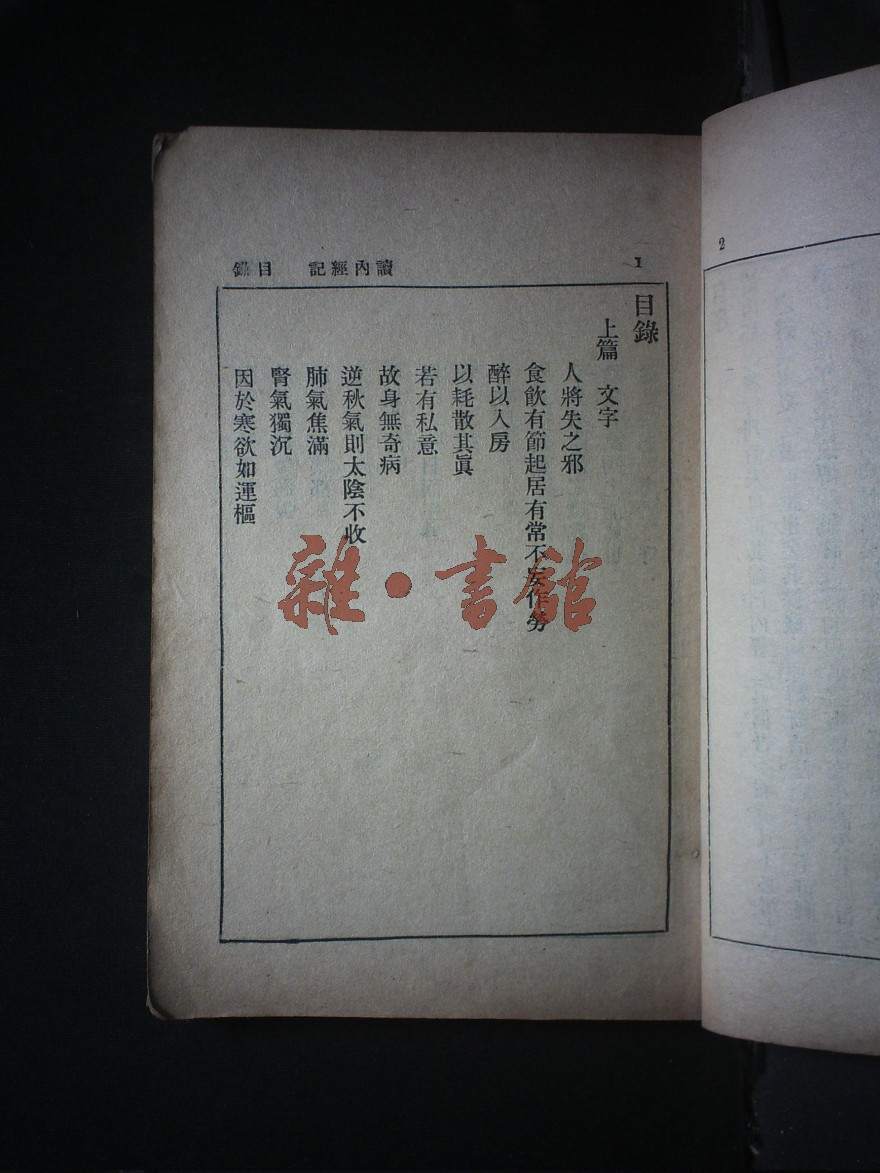 讀內經記　目錄
1
目錄
上篇　文字
人將失之邪
食飲有節起居有常不妄作勞
醉以入房
以耗散其眞
若有私意
故身無奇病
逆秋氣則太陰不收
肺氣焦滿
腎氣獨沉
因於寒欲如運樞
雜·書館
2